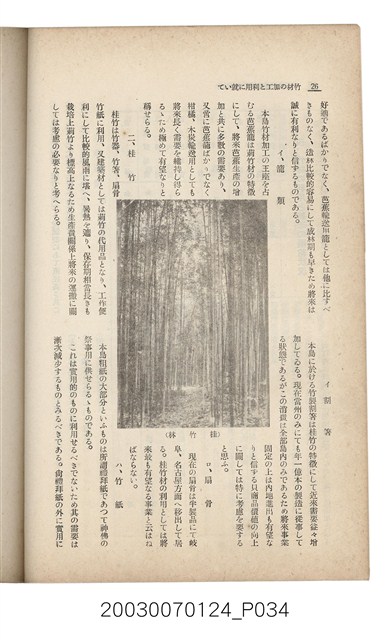 竹材の加工と利用に就いて 26
好適であるばかりでなく、芭蕉輸送用籠としては他に比すべ
きものなく、造林比較的容易にして成林期も早きため將來は
誠に有利なりと信ずるものである。
イ、籠類
本島竹材加工の王座を占
むる芭蕉籠は莿竹材の特徴
にして、將來芭蕉生產の增
加と共に多數の需要あり、
又常に芭蕉籠ばかりでなく
柑橘、木炭輸送用としても
將來長く需要を維持し得ら
るゝため極めて有望なりと
稱せらる。
二、桂竹
桂竹は竹器、竹箸、扇骨
竹紙に利用、又建築材としては莿竹の代用品となり、工作便
利にして比較的風雨に堪へ、暑熱を遮り、保存期相當長きも
栽培上莿竹より標高上なるため生產費關係上將來の運搬に關
しては考慮の必要なりと考へらる。
(桂竹林)
イ、割箸
本島に於ける竹製割箸は桂竹の特徴にして近來需要益々增
加してゐる。現在當州のみにても年一億本の製造に從事して
る狀態であるがこの消費は全部島內のみであるため將來事業
固定の上は內地進出も有望な
りと信ずるも以商品價値の向上
に關しては特に考慮を要する
と思ふ。
ロ、扇骨
現在の扇骨は半製品にて岐
阜、名古屋方面へ移出して居
る。桂竹材の利用としては將
來最も有望なる事業と云はね
ばならない。
ハ、竹紙
本島粗紙の大部分といふものは所謂禮拜紙であつて神佛の
祭事用に供せらるゝものである。
これは實用的のものに利用せるべきでないため其の需要は
漸次減少するものとみるべきである。尙禮拜紙の外に實用に
20030070124_P034